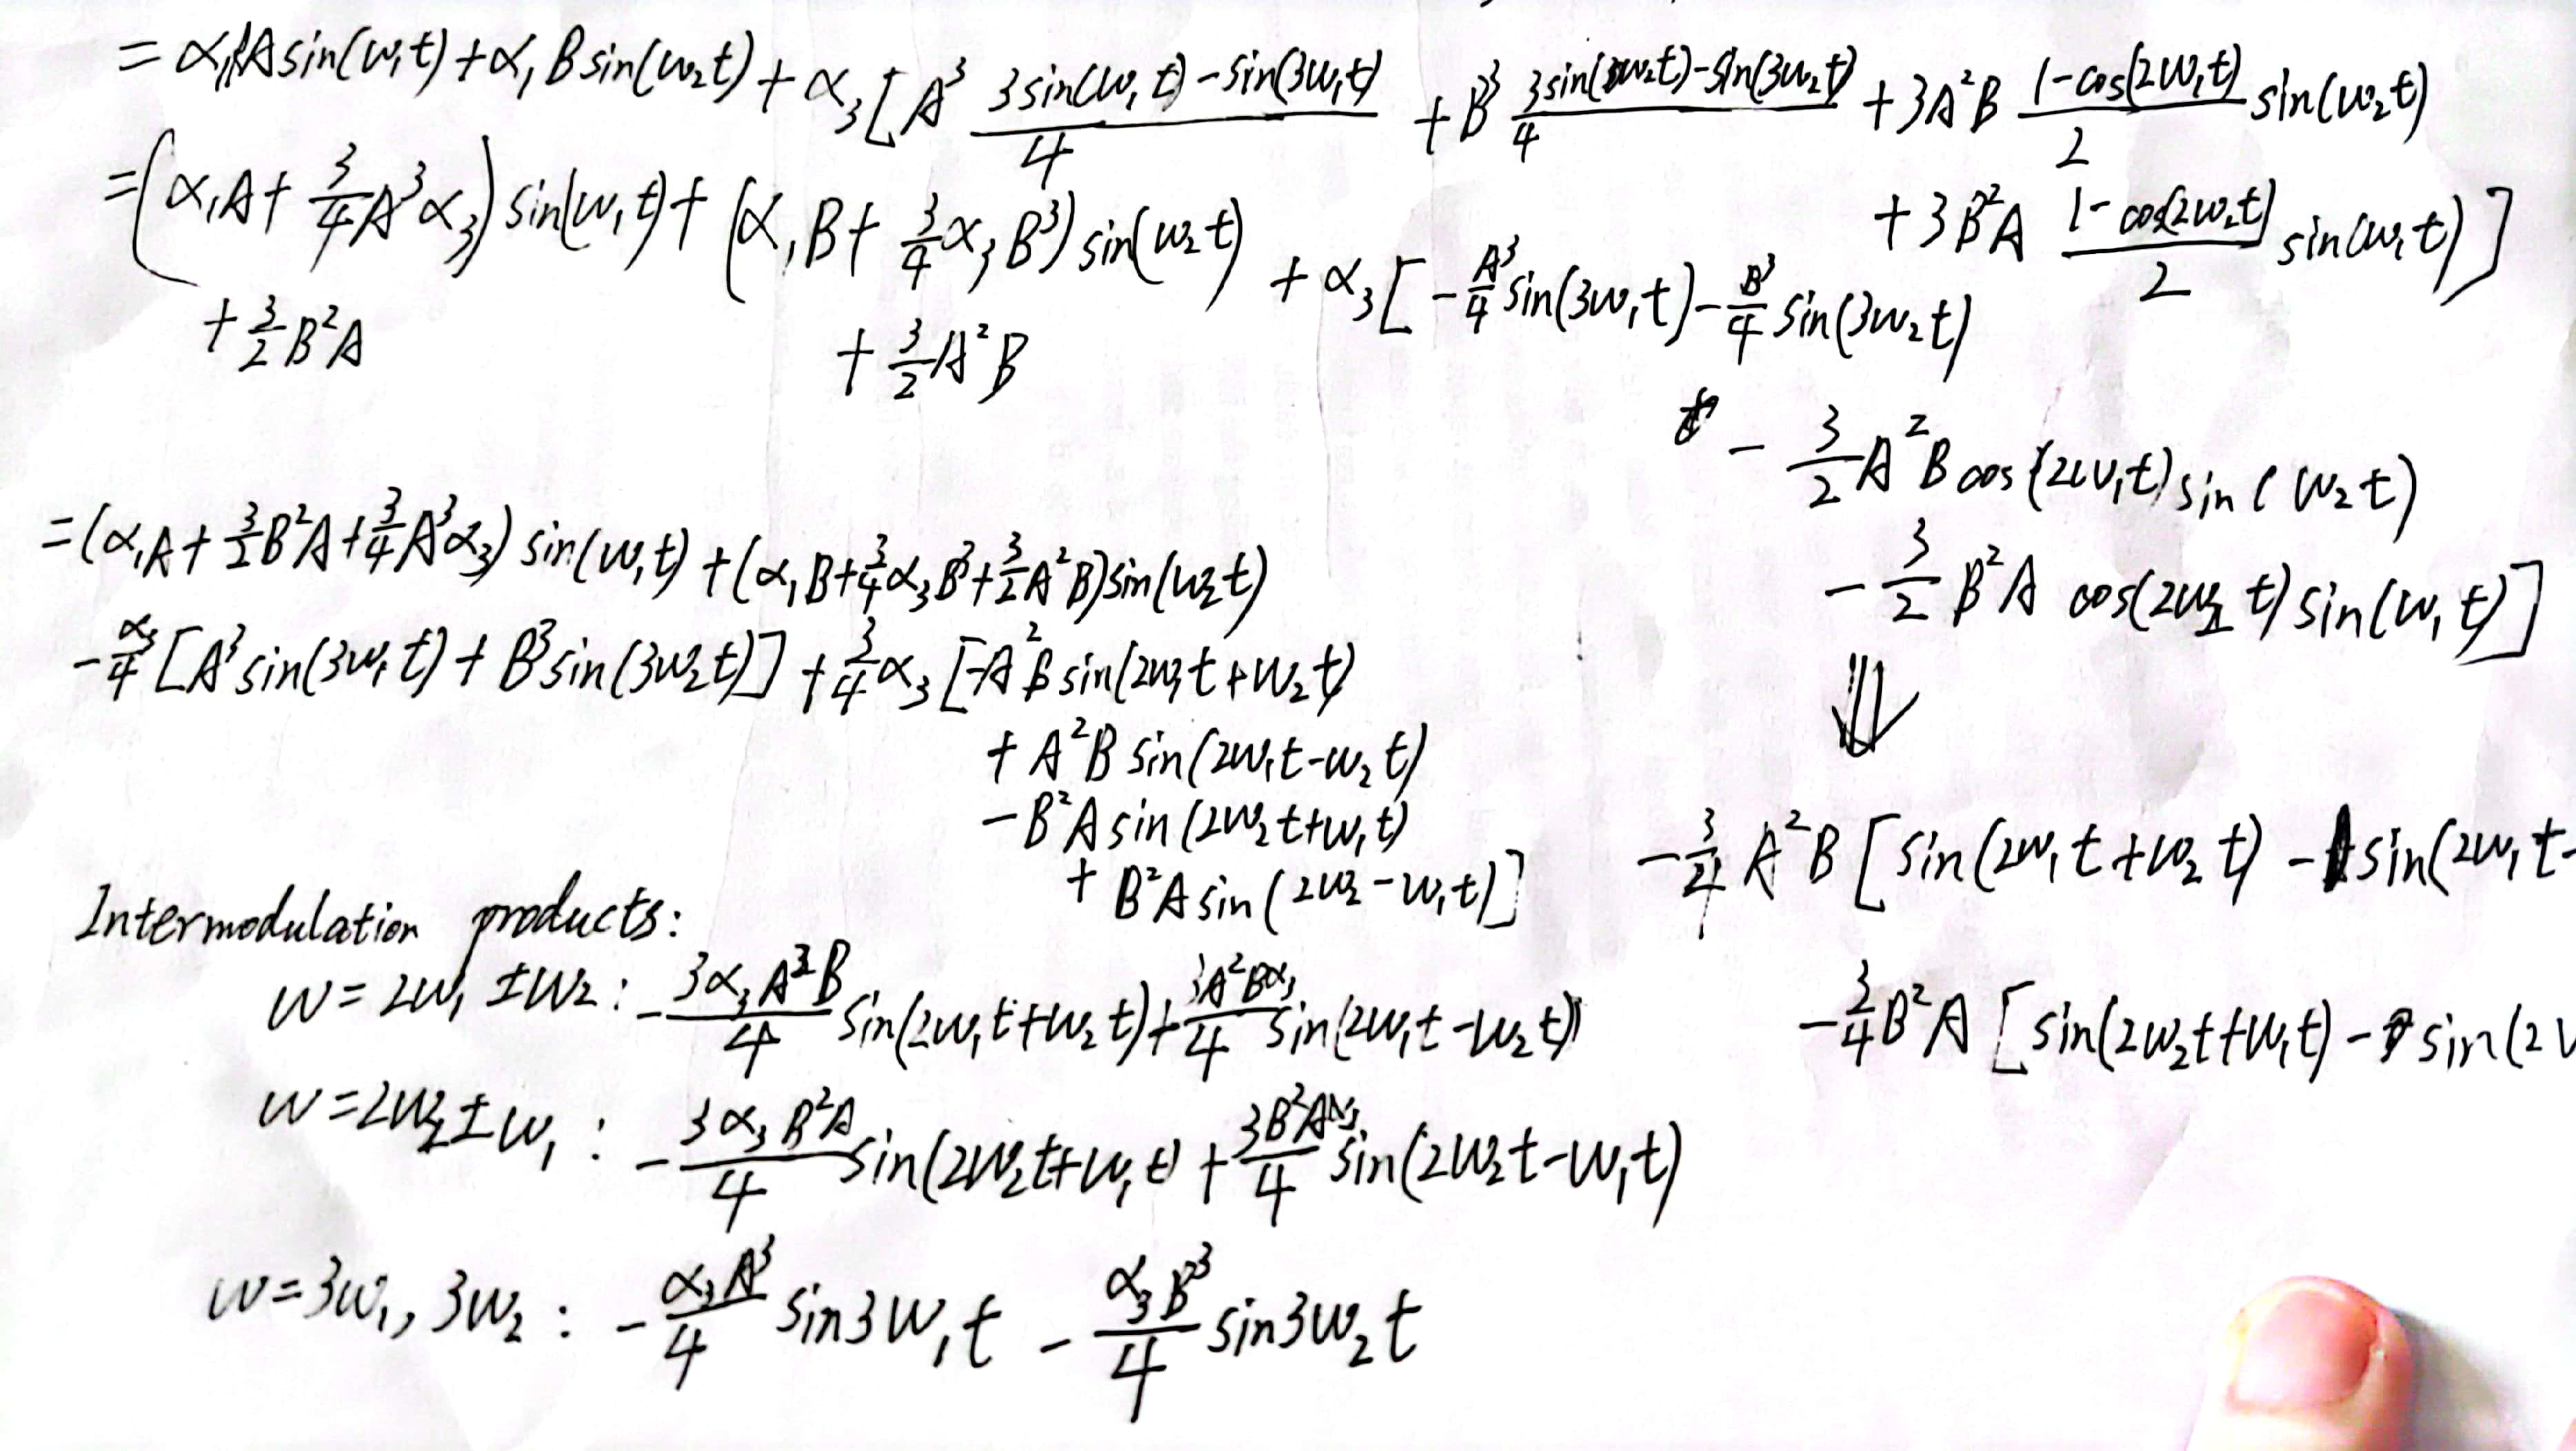 = α₁A sin(w₁t) + α₁B sin(w₂t) + α₃[A³ (3sin(w₁t) - sin(3w₁t))/4 + B³ (3sin(w₂t) - sin(3w₂t))/4 + 3A²B (1-cos(2w₁t))/2 sin(w₂t)
+ 3B²A (1-cos(2w₂t))/2 sin(w₁t)]
= (α₁A + 3/4 A³α₃) sin(w₁t) + (α₁B + 3/4 α₃B³) sin(w₂t) + α₃[-A³/4 sin(3w₁t) - B³/4 sin(3w₂t)
+ 3/2 B²A + 3/2 A²B
- 3/2 A²B cos(2w₁t) sin(w₂t)
- 3/2 B²A cos(2w₂t) sin(w₁t)]
⇓
-3/4 A²B [sin(2w₁t + w₂t) - sin(2w₁t-
-3/4 B²A [sin(2w₂t+w₁t) - sin(2
= (α₁A + 3/2 B²A + 3/4 A³α₃) sin(w₁t) + (α₁B + 3/4 α₃B³ + 3/2 A²B) sin(w₂t)
- α₃/4 [A³ sin(3w₁t) + B³ sin(3w₂t)] + 3/4 α₃ [-A²B sin(2w₁t + w₂t)
+ A²B sin(2w₁t - w₂t)
- B²A sin(2w₂t + w₁t)
+ B²A sin(2w₂ - w₁t)]
Intermodulation products:
w = 2w₁ ± w₂ : - 3α₃A²B/4 sin(2w₁t + w₂t) + 3A²Bα₃/4 sin(2w₁t - w₂t)
w = 2w₂ ± w₁ : - 3α₃B²A/4 sin(2w₂t + w₁t) + 3B²Aα₃/4 sin(2w₂t - w₁t)
w = 3w₁, 3w₂ : - α₃A³/4 sin3w₁t - α₃B³/4 sin3w₂t